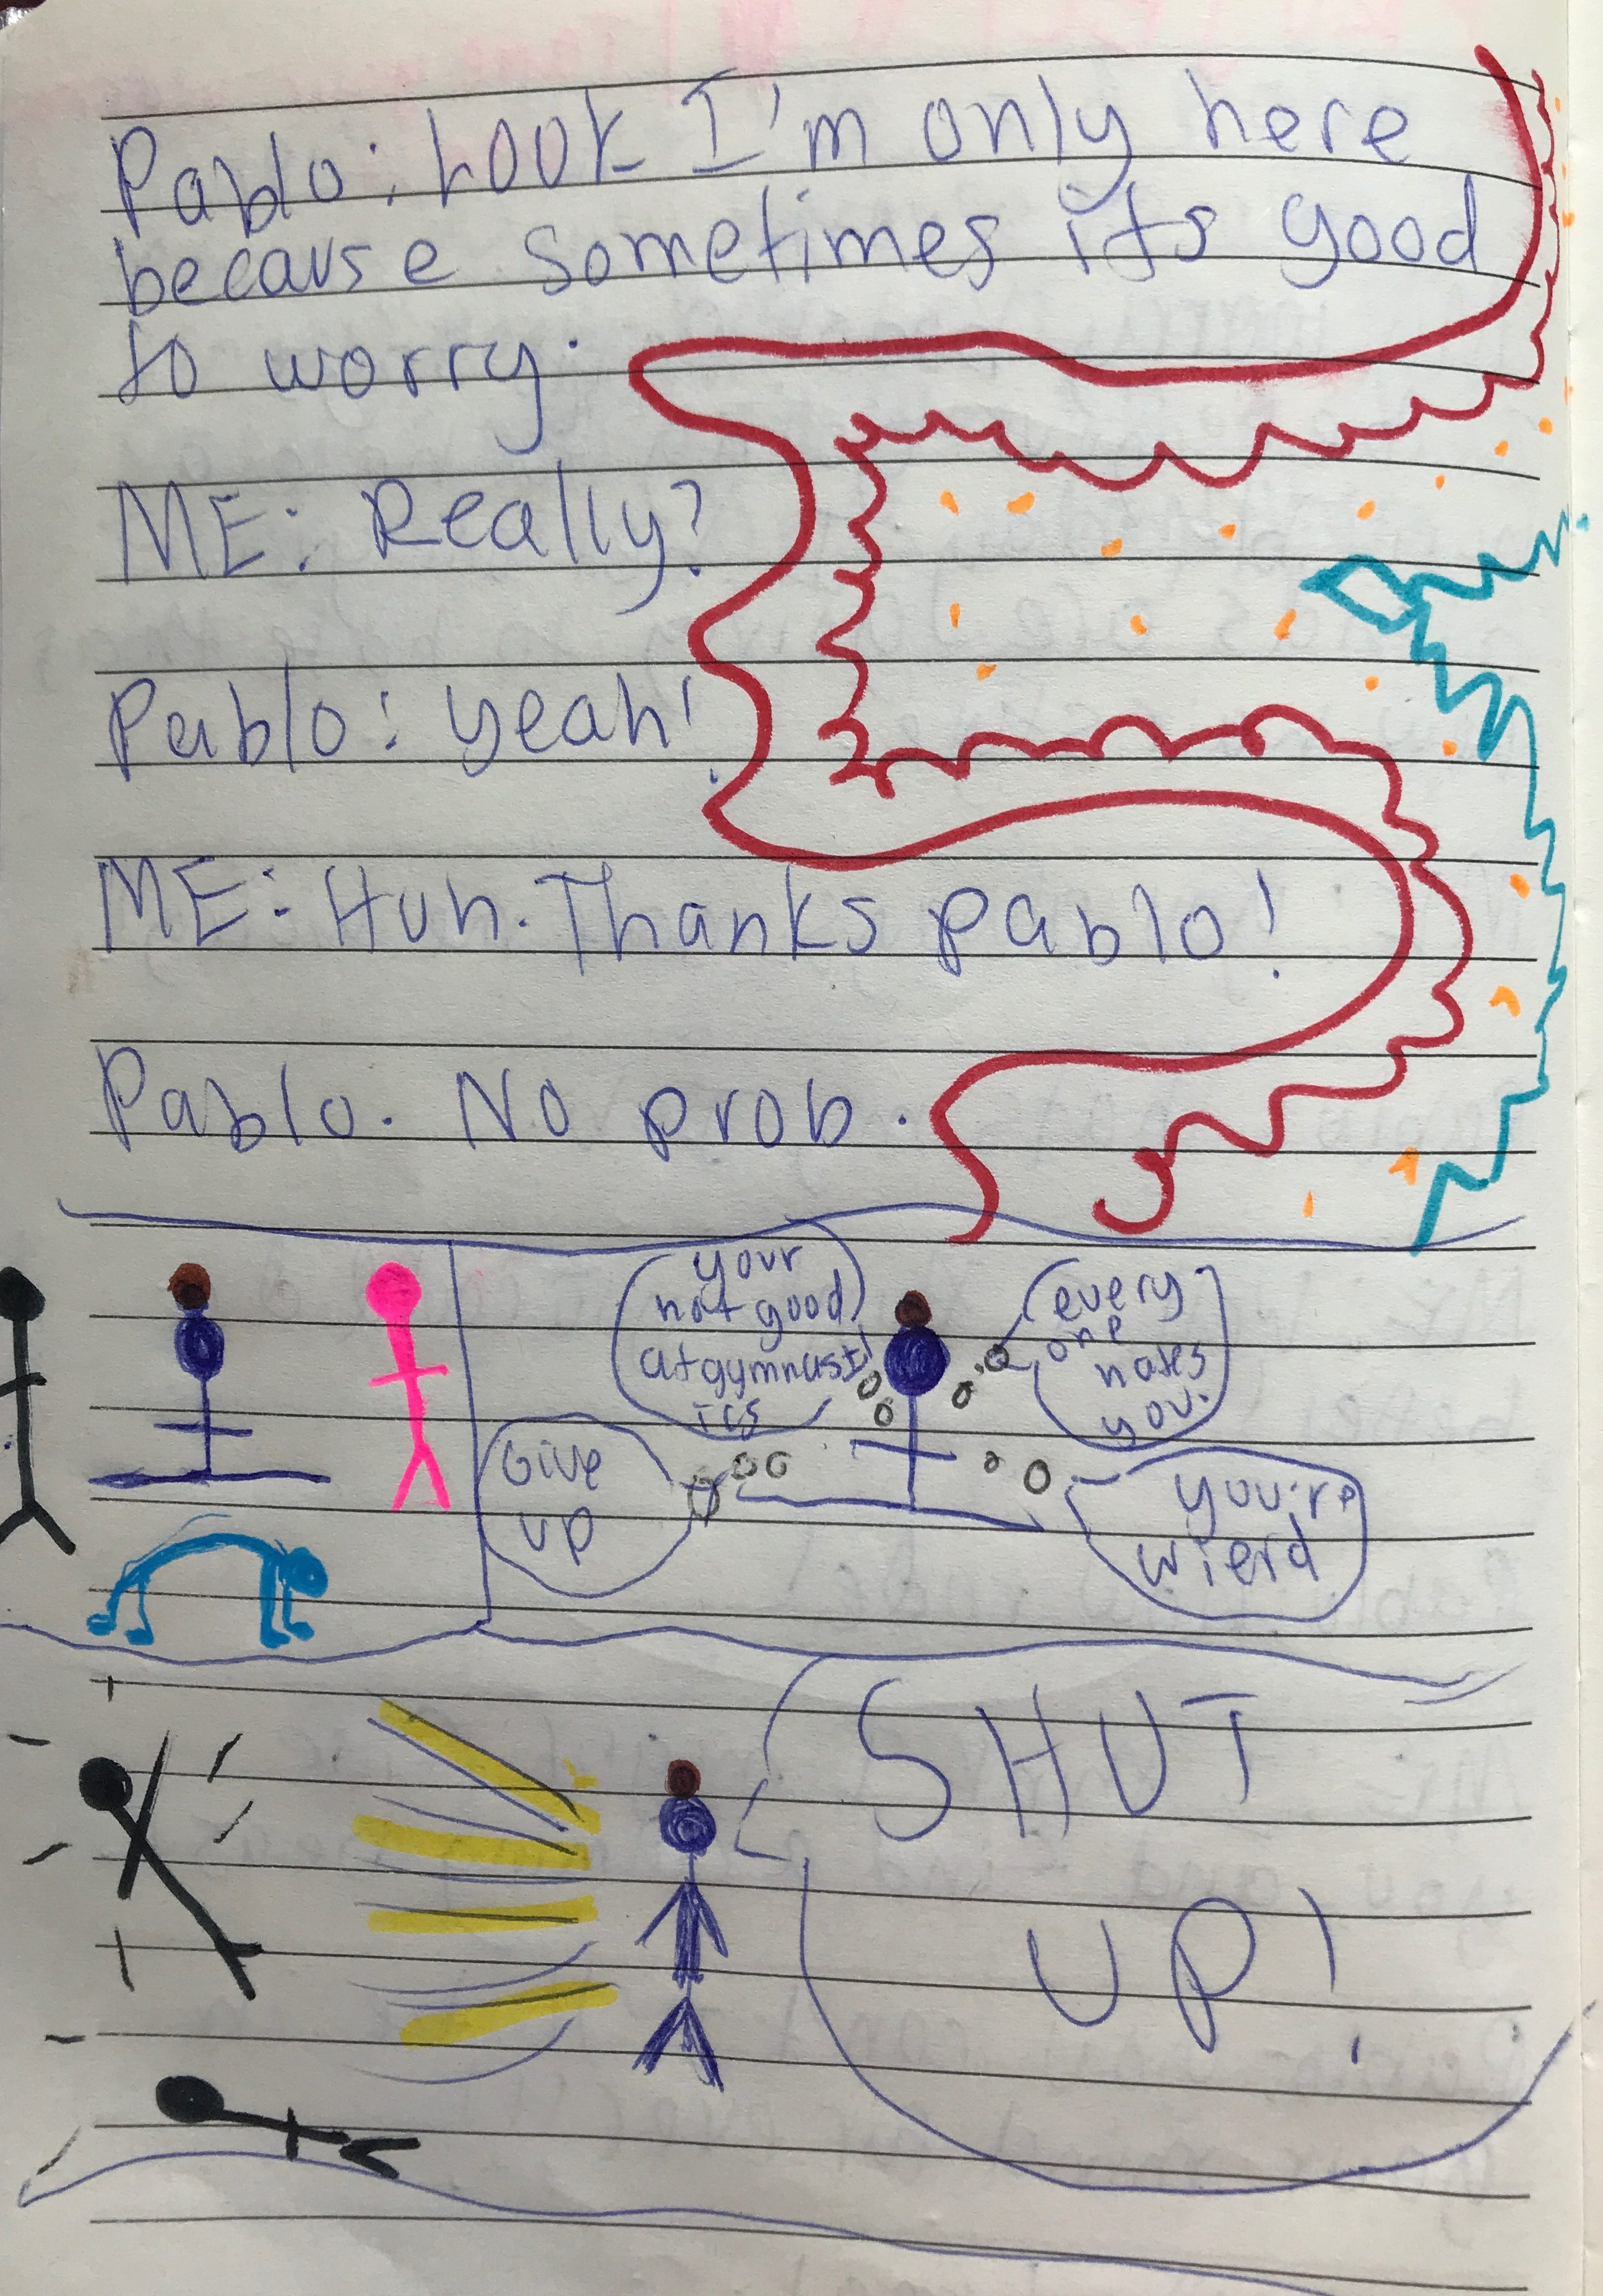 Pablo: Look I'm only here
because sometimes it's good
to worry.
ME: Really?
Pablo: yeah!
ME: Huh. Thanks pablo!
Pablo. No prob.
your
not good
at gymnast
ics
every
one
hates
you.
Give
up
you're
wierd
SHUT
UP!